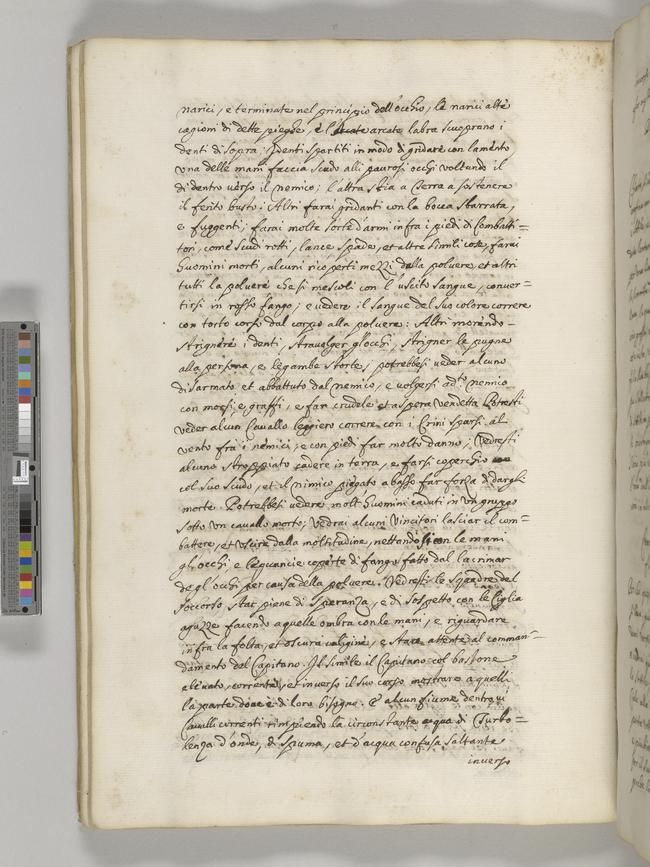 narici, e terminate nel principio dell'occhio, le narici alte
cagioni di dette pieghe, e l' arcate labra scuoprano i
denti di sopra; i denti spartiti in modo di gridare con lamento
una delle mani faccia scudo alli paurosi occhi voltando il
di dentro verso il nemico; l'altra stia a Terra a sostenere
il ferito busto; Altri farai gridanti con la bocca sbarrata,
e fuggenti; farai molte sorte d'armi infra i piedi di Combatti=
tori, come scudi rotti, lance, spade, et altre simili cose, farai
huomini morti, alcuni ricoperti mezzi dalla polvere, et altri
tutti la polvere che si mescoli con l'uscito sangue, conver=
tirsi in rosso fango; e vedere il sangue del suo colore correre
con torto corso dal corpo alla polvere; Altri morendo
strignere i denti, stravolger gl'occhi, strigner le pugne
alla persona, e le gambe storte, potrebbesi veder alcuno
disarmato et abbattuto dal nemico, e volgersi a di.º nemico
con morsi, e graffi, e far crudele et aspera vendetta Potresti
veder alcun Cavallo leggiero correre con i Crini sparsi al
vento fra i nemici; e con piedi far molto danno; Vedresti
alcuno stroppiato cadere in terra, e farsi coperchio
col suo scudo, et il nimico piegato a basso far forza di dargli
morte. Potrebbesi vedere molt'huomini caduti in un gruppo
sotto un cavallo morto; vedrai alcuni Vincitori lasciar il com=
battere, et uscire dalla moltitudine, nettandosi con le mani
gl'occhi, e le guancie coperte di fango, fatto dal lacrimar
degl'occhi per causa della polvere. Vedresti le squadre del
soccorso star piene di speranza, e di sospetto con le Ciglia
aguzze facendo a quelle ombra con le mani, e riguardare
infra la folta, et oscura caligine, e stare attente al comman=
damento del Capitano. Il simile il Capitano col bastone
alevato, corrente, et inverso il suo corso mostrare a quelli
la parte dove è di loro bisogno. E alcun fiume dentrovi
Cavalli correnti riempiendo la circonstante acqua di Turbo=
lenza d'onde, di spiuma, et d'acqua confusa saltante
inverso